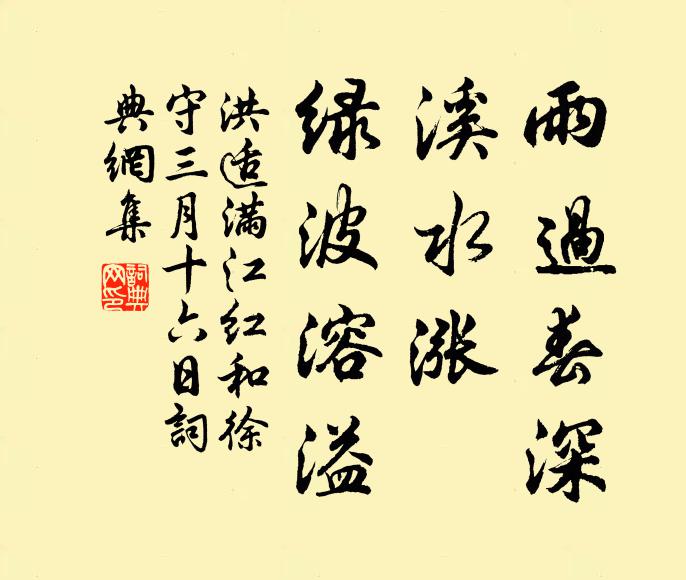 雨過春深
溪水漲
绿波溶溢
洪适满江红和徐
守三月十六日詞
典網集
詞典網印